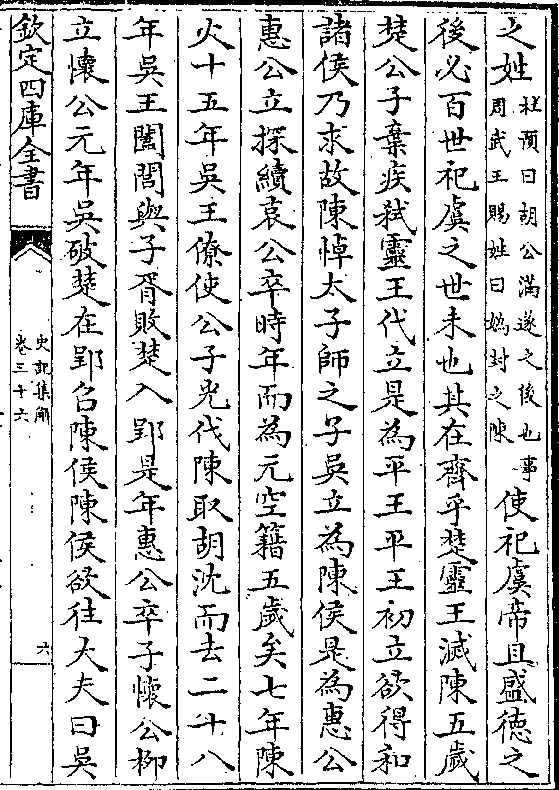 之姓
杜預曰胡公滿遂之後也事
周武王賜姓曰媯封之陳
使祀虞帝且盛徳之
後必百世祀虞之世未也其在齊乎楚靈王滅陳五歲
楚公子棄疾弒靈王代立是為平王平王初立欲得和
諸侯乃求故陳悼太子師之子吳立為陳侯是為惠公
惠公立探續哀公卒時年而為元空籍五歲矣七年陳
火十五年吳王僚使公子光伐陳取胡沈而去二十八
年吳王闔閭與子胥敗楚入郢是年惠公卒子懷公柳
立懷公元年吳破楚在郢召陳侯陳侯欲往大夫曰吳
欽定四庫全書
史記集解
卷三十六
六